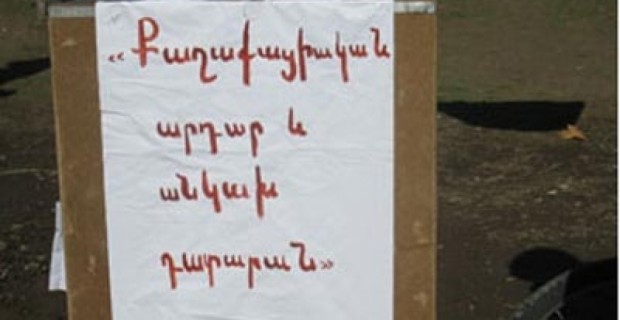 «Քաղաքացիական
արդար և
անկախ
դատարան»